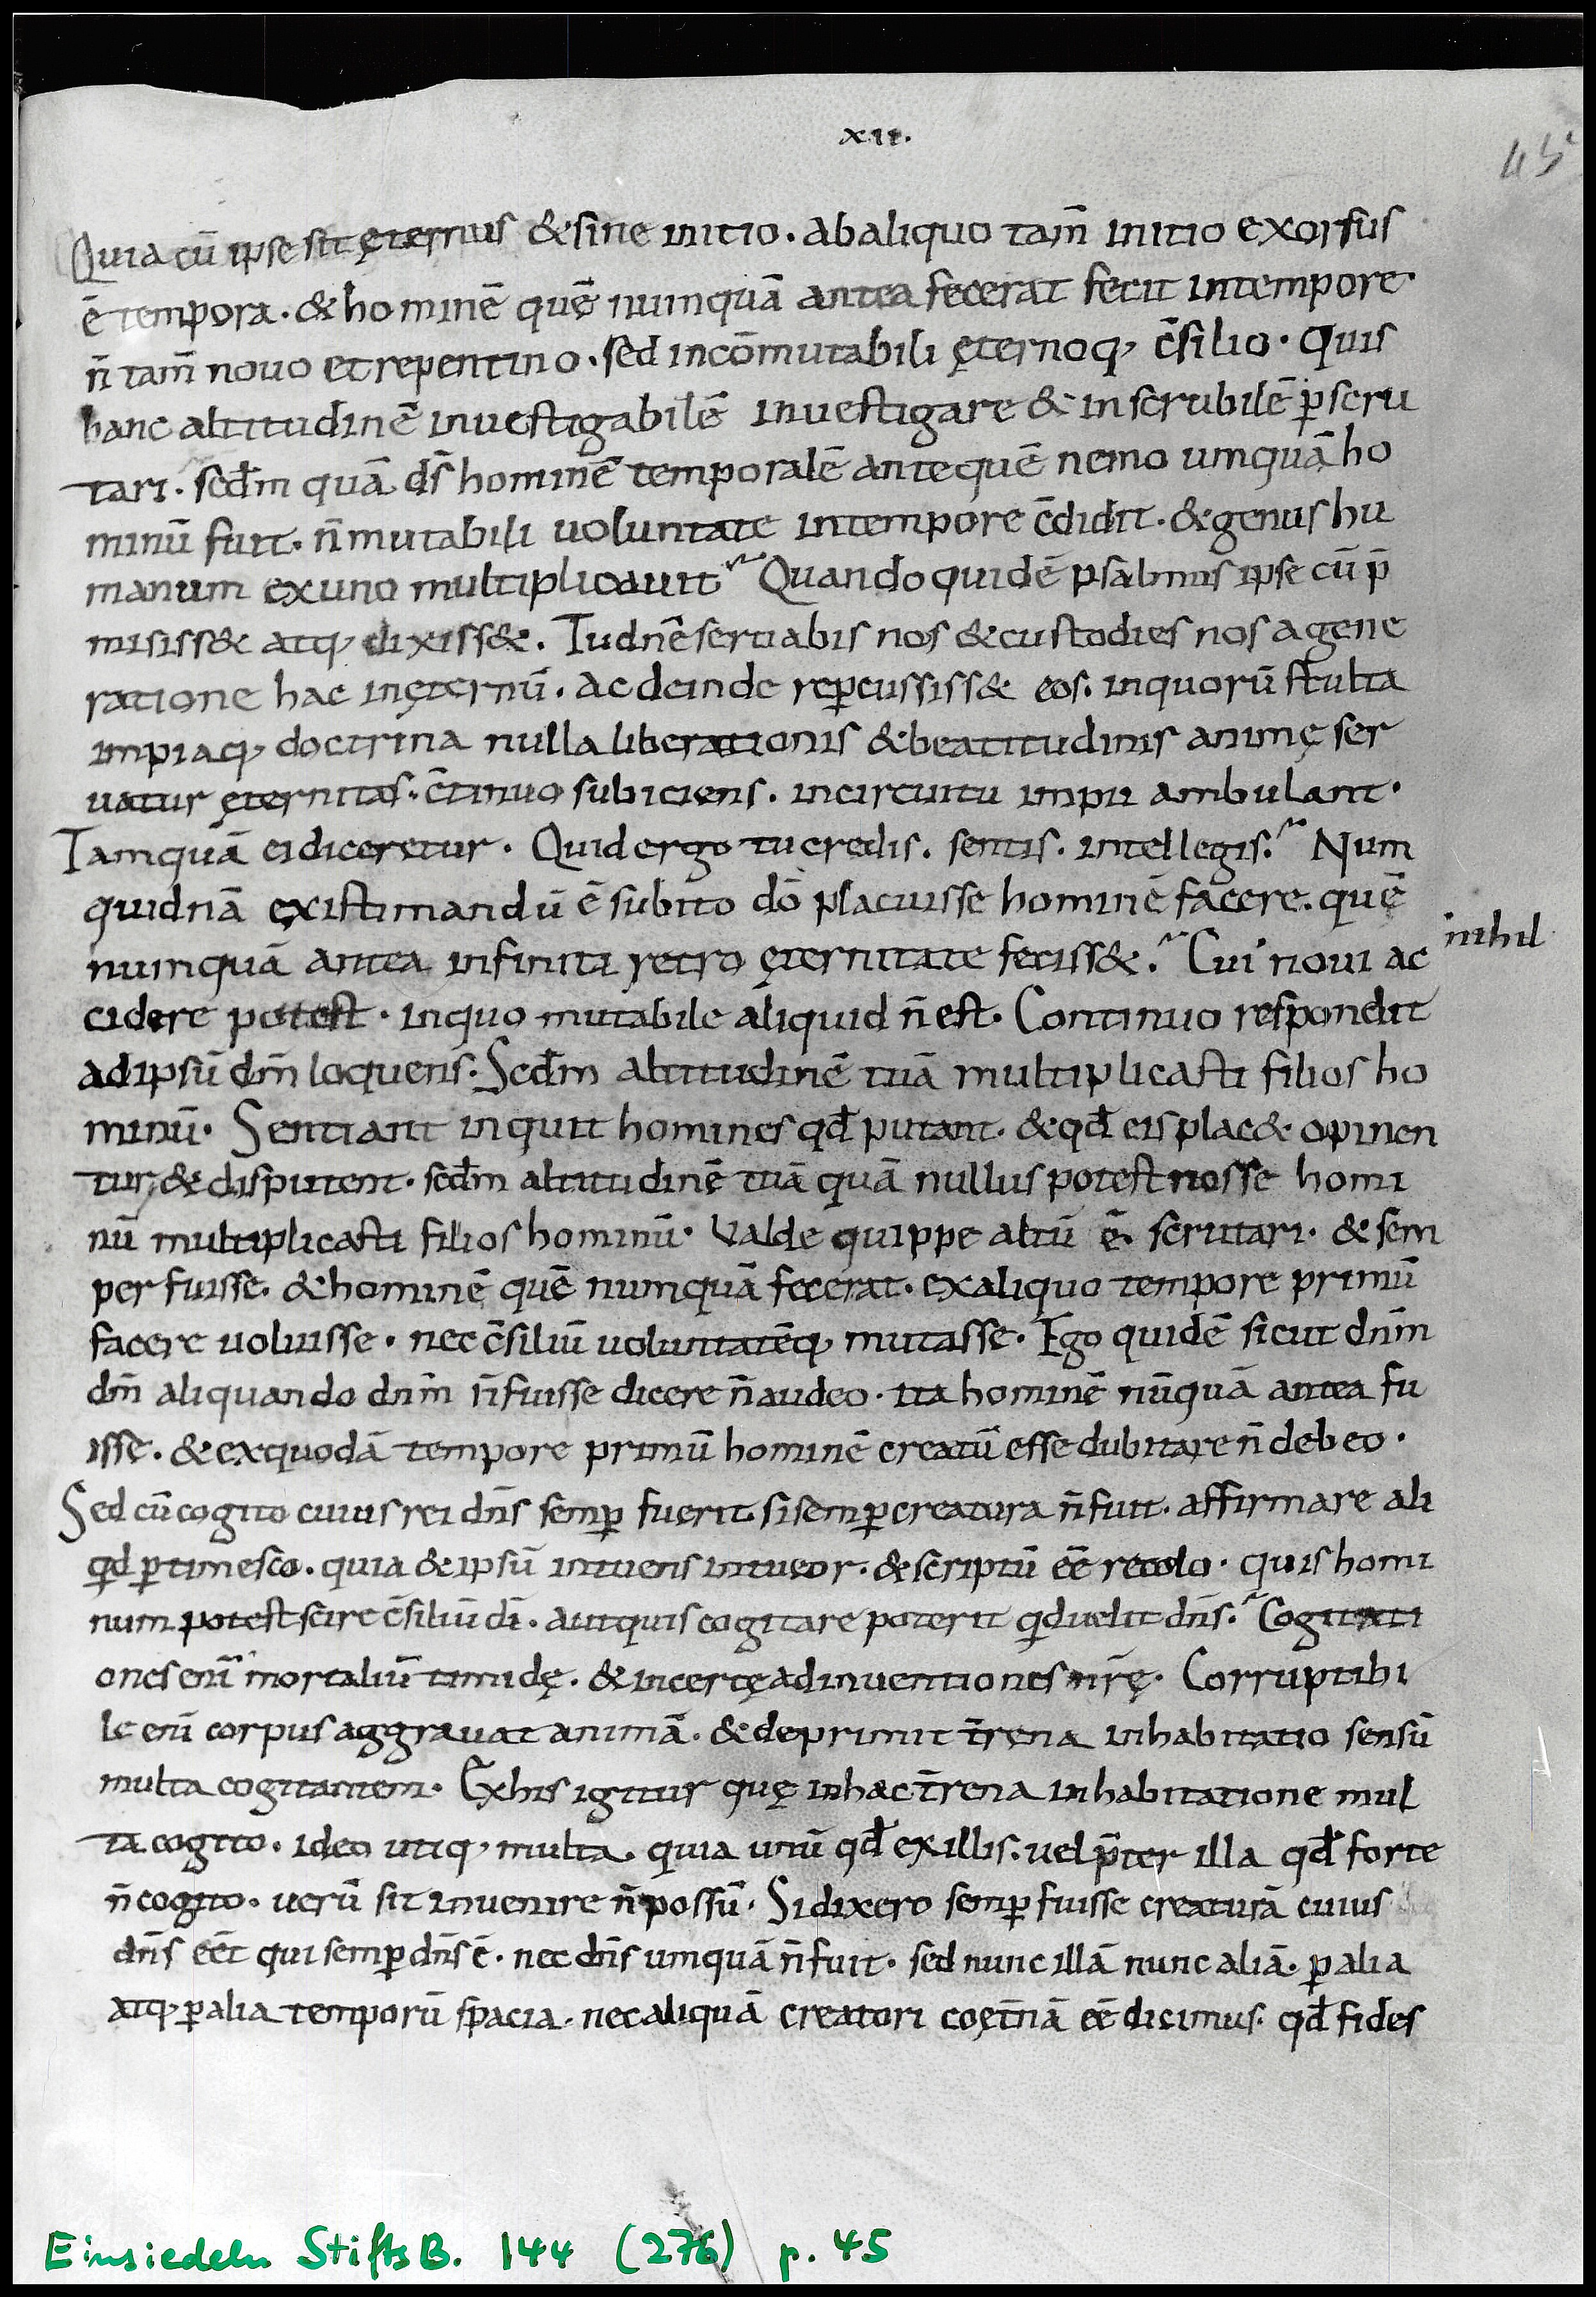 xii.
45
Quia cū ipse sit ęternus & sine initio. ab aliquo tam̄ initio exorsus
ē tempora. & hominē quē numquā antea fecerat fecit in tempore.
n̄ tam̄ nouo et repentino. sed incōmutabili ęternoq; c̄silio. Quis
hanc altitudinē inuestigabilē inuestigare & inscrubilē p̱scru
tari. scđm quā dſ̄ hominē temporalē ante quē nemo umquā ho
minū fuit. n̄ mutabili uoluntate in tempore c̄didit. & genus hu
manum ex uno multiplicauit? Quando quidē psalmus ipse cū p̄
misiss& atq; dixiss&. Tu dnē seruabis nos & custodies nos a gene
ratione hac in ęternū. ac deinde rep̱cussiss& eos. in quorū stulta
impiaq; doctrina nulla liberationis & beatitudinis animę ser
uatur ęternitas. c̄tinuo subiciens. in circuitu impii ambulant.
Tamquā ei diceretur. Quid ergo tu credis. sentis. intellegis? Num
quidnā existimandū ē subito dō placuisse hominē facere. quē
numquā antea infiniti retro ęternitate feciss&? Cui noui ac
nihil
cidere potest. in quo mutabile aliquid n̄ est. Continuo respondit
ad ipsū dm̄ loquens. Scđm altitudinē tuā multiplicasti filios ho
minū. Sentiant inquit homines qđ putant. & qđ eis plac& opinen
tur & disputent. scđm altitudinē tuā quā nullus potest nosse homi
nū multiplicasti filios hominū. Valde quippe altū ē. scrutari. & sem
per fuisse. & hominē quē numquā fecerat. ex aliquo tempore primū
facere uoluisse. nec c̄siliū uoluntatēq; mutasse. Ego quidē sicut dnm̄
dm̄ aliquando dnm̄ n̄ fuisse dicere n̄ audeo. ita hominē nūquā antea fu
isse. & ex quodā tempore primū hominē creatū esse dubitare n̄ debeo.
Sed cū cogito cuius rei dn̄s semp̱ fuerit. si semp̱ creatura n̄ fuit. affirmare ali
qd p̱timesco. quia & ipsū intuens intueor. & scriptū eē recolo. quis homi
num potest scire c̄siliū dī. aut quis cogitare poterit qd uelit dn̄s? Cogitati
ones enī mortaliū timidę. & incertę adinuentiones nr̄ę. Corruptibi
le enī corpus aggrauat animā. & deprimit t̄rena inhabitatio sensū
multa cogitantem. Ex his igitur quę in hac t̄rena inhabitatione mul
ta cogito. ideo utiq; multa. quia unū qđ ex illis. uel p̄ter illa qđ forte
n̄ cogito. uerū sit inuenire n̄ possū. Si dixero semp̱ fuisse creaturā cuius
dn̄s eēt qui semp̱ dn̄s ē. nec dn̄s umquā n̄ fuit. sed nunc illā nunc aliā. p̱ alia
atq; p̱ alia temporū spacia. nec aliquā creatori coęt̄nā eē dicimus. qđ fides
Einsiedeln StiftsB. 144 (276) p. 45